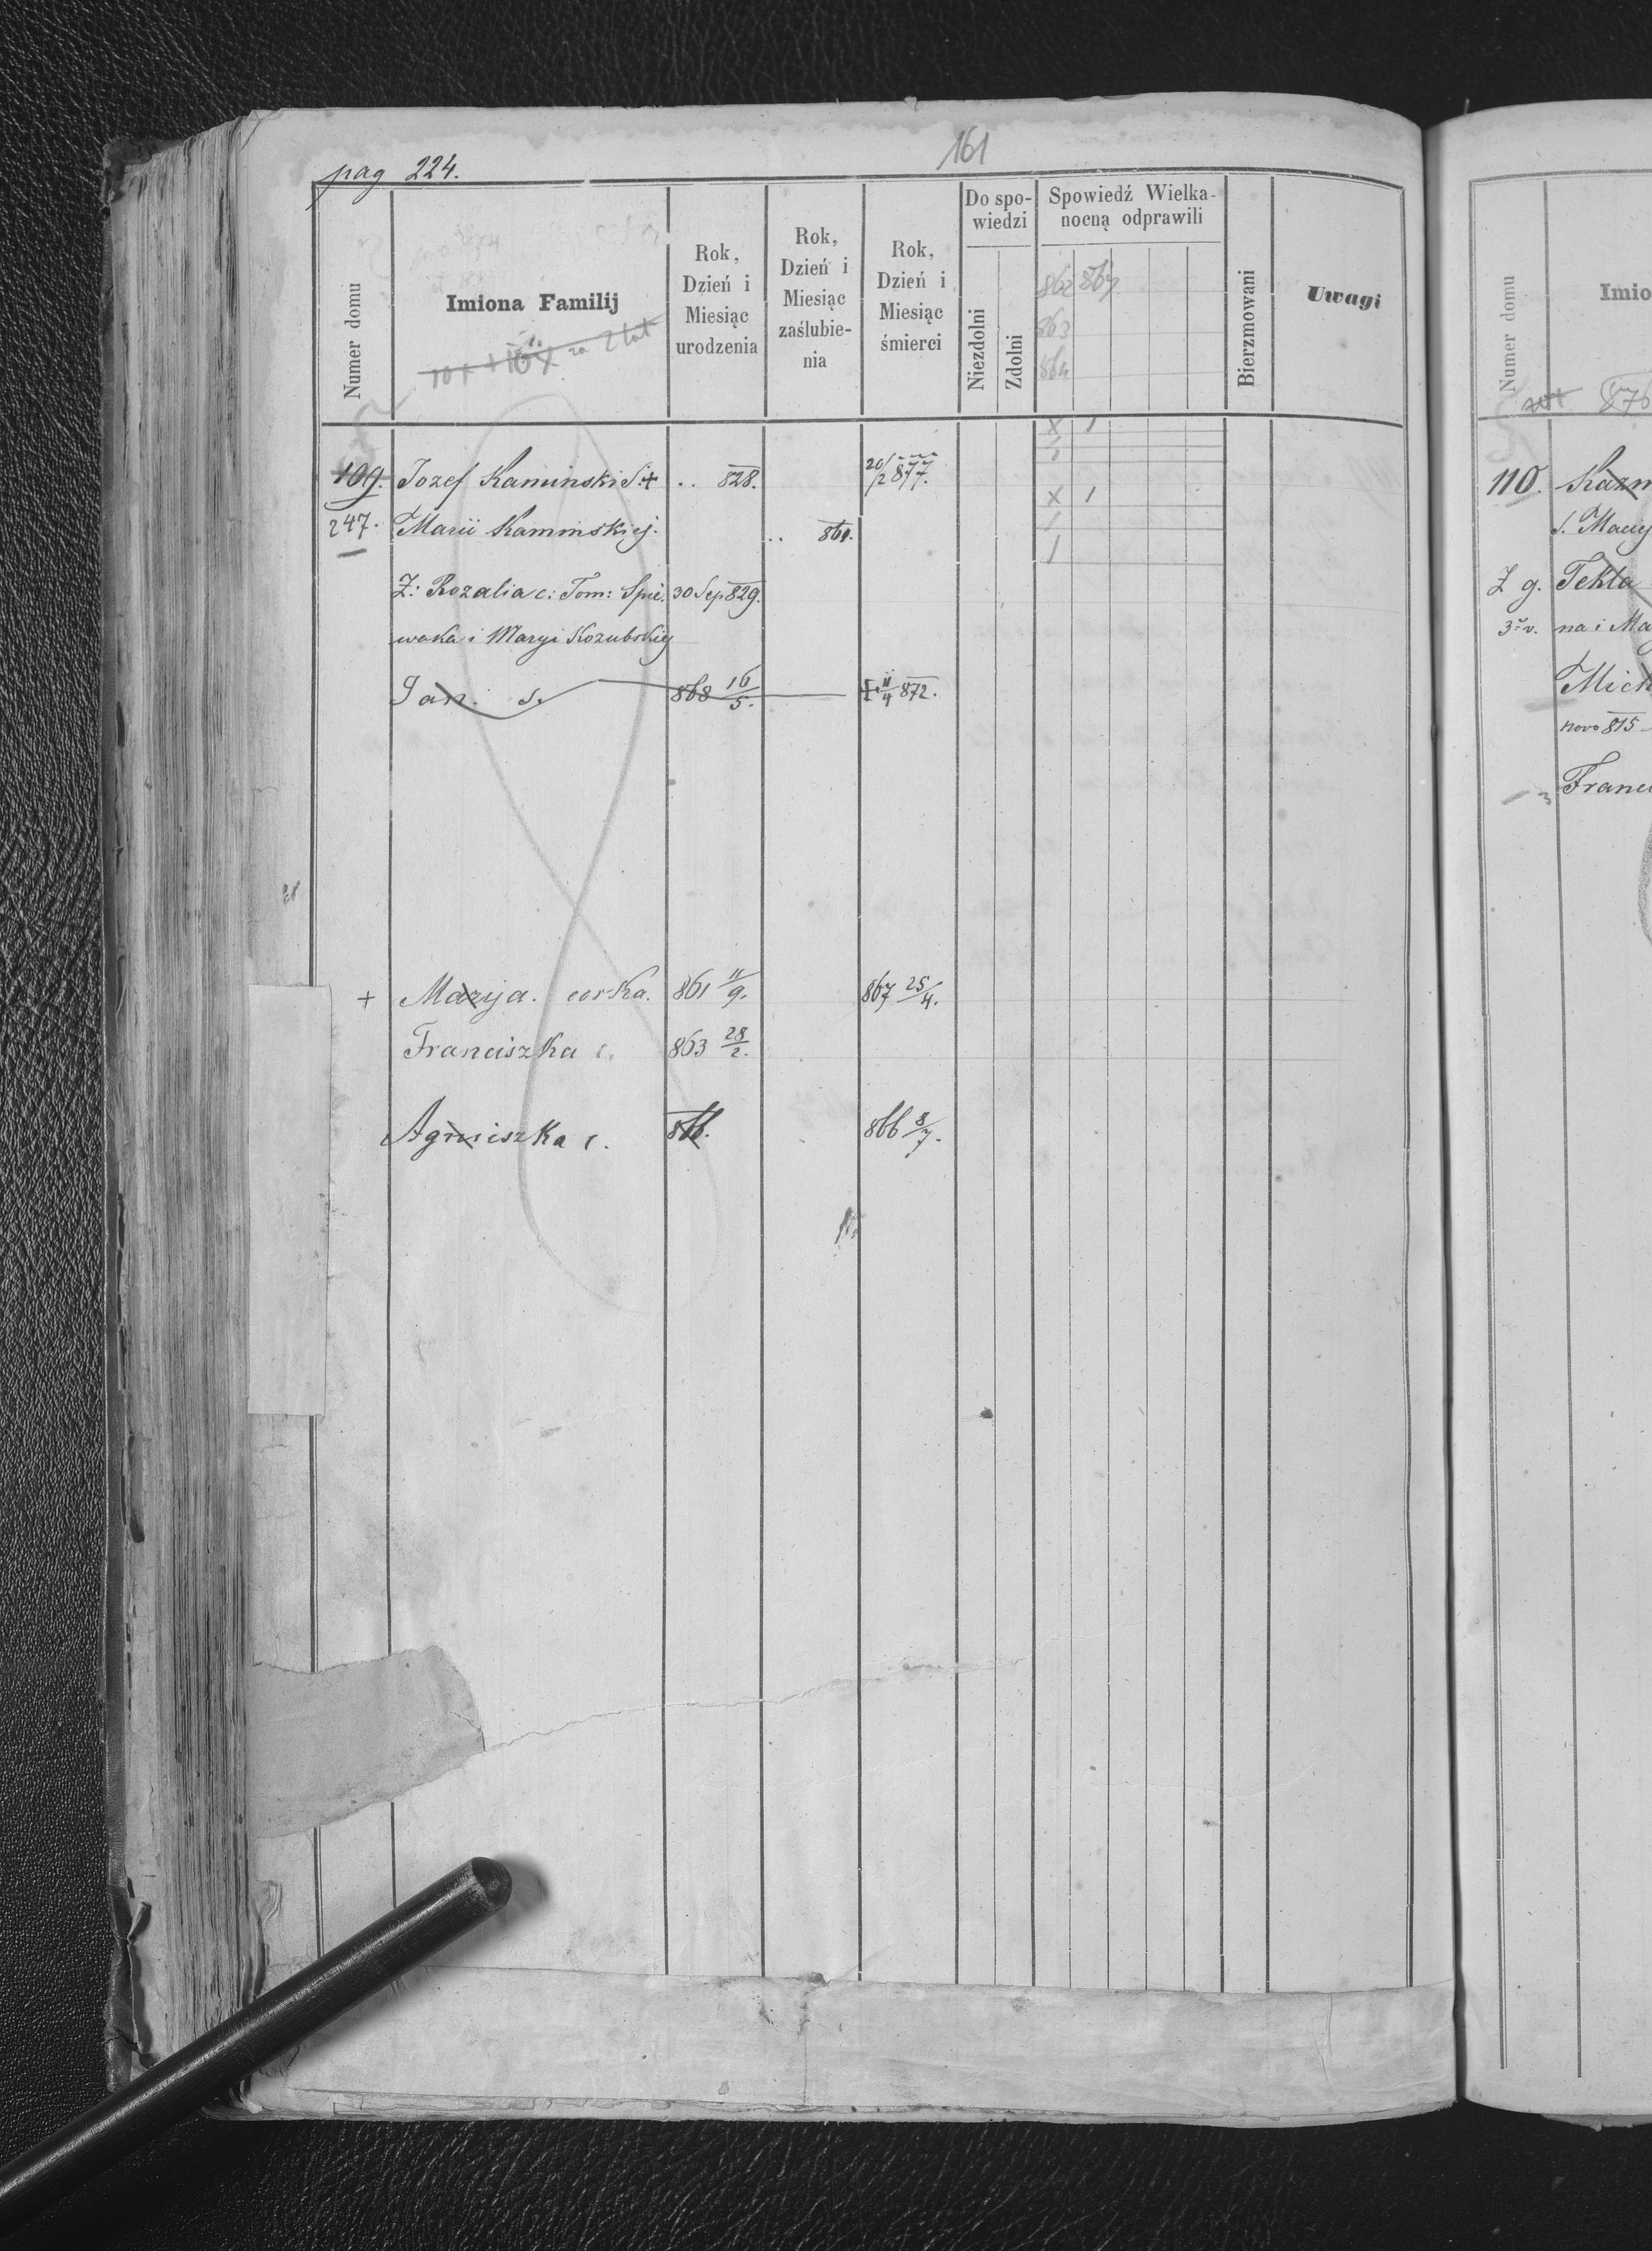 161
pag 224.
Numer domu
Imiona Familij
Rok, Dzień i Miesiąc urodzenia
Rok, Dzień i Miesiąc zaślubienia
Rok, Dzień i Miesiąc śmierci
Do spowiedzi
Niezdolni
Zdolni
Spowiedź Wielkanocną odprawili
862 867
863
864
Bierzmowani
Uwagi
za 2 lat
x 1
1
109. Jozef Kaminski S. + .. 828. 20/2 877.
x 1
247. Marii Kaminskiej. .. 860.
1
1
Z: Rozalia c: Tom: Spie. 30 Sep 829.
waka i Maryi Kozubskiej
Jan s. 868 16/5. + 11/4 872.
+ Maryja. corka. 861 11/9. 867 25/4.
Franciszka c. 863 28/2.
Agniszka c. 866. 866 8/7.
Numer domu
Imio
876
110. Kazm
s. Maciej
Z g. Tekla
3° v. na i Ma
Mich
novo 815
Franc